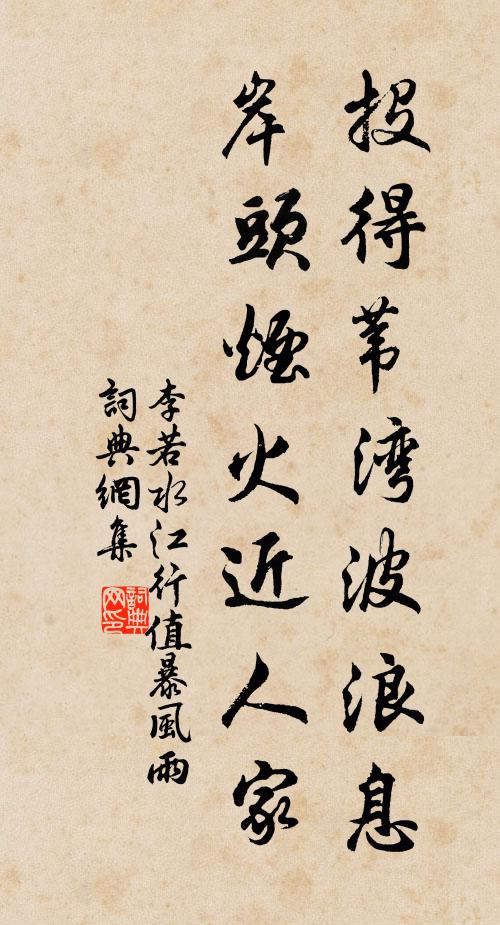 投得苇湾波浪息
岸頭煙火近人家
李若水江行值暴風雨
詞典網集
詞典网印